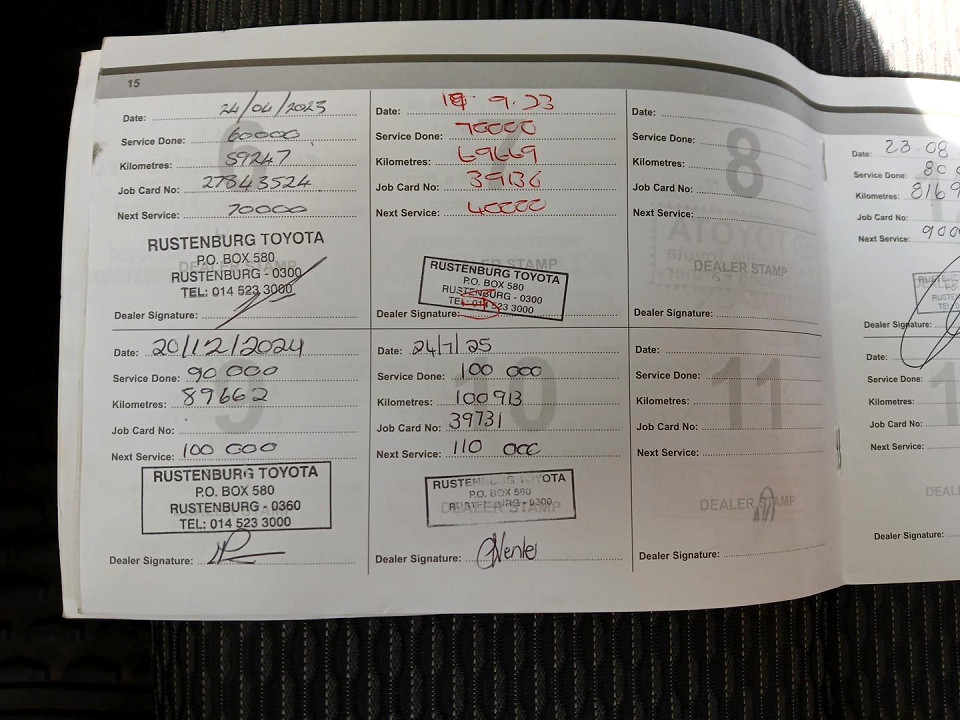 15
Date: 24/04/2023
Service Done: 60000
Kilometres: 59247
Job Card No: 27843524
Next Service: 70000
6
DEALER STAMP
RUSTENBURG TOYOTA
P.O. BOX 580
RUSTENBURG - 0300
TEL: 014 523 3000
Dealer Signature:
Date: 9.23
Service Done: 70000
Kilometres: 69669
Job Card No: 39136
Next Service: 40000
7
DEALER STAMP
RUSTENBURG TOYOTA
P.O. BOX 580
RUSTENBURG - 0300
TEL: 014 523 3000
Dealer Signature:
Date:
Service Done:
Kilometres:
Job Card No:
Next Service:
8
DEALER STAMP
Dealer Signature:
Date: 20/12/2024
Service Done: 90 000
Kilometres: 89662
Job Card No:
Next Service: 100 000
9
RUSTENBURG TOYOTA
P.O. BOX 580
RUSTENBURG - 0360
TEL: 014 523 3000
Dealer Signature:
Date: 24/7/25
Service Done: 100 000
Kilometres: 100913
Job Card No: 39731
Next Service: 110 000
10
DEALER STAMP
RUSTENBURG TOYOTA
P.O. BOX 580
RUSTENBURG - 0300
Dealer Signature:
Date:
Service Done:
Kilometres:
Job Card No:
Next Service:
11
DEALER STAMP
Dealer Signature:
Date: 23.08
Service Done: 80
Kilometres: 8169
Job Card No:
Next Service: 900
Dealer Signature:
Date:
Service Done:
Kilometres:
Job Card No:
Next Service:
Dealer Signature: